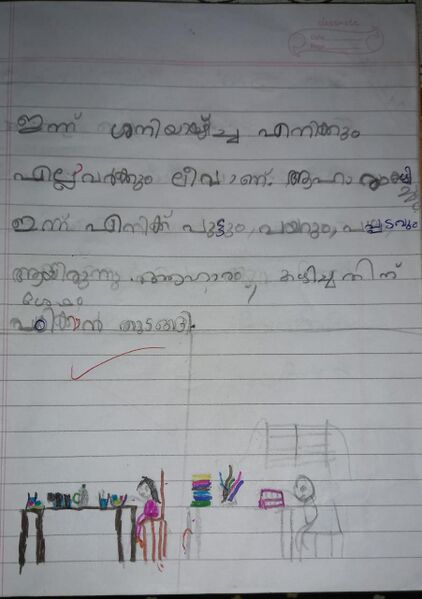 classmate
Date
Page
ഇന്ന് ശനിയാഴ്ച്ച എനിക്കും
എല്ലവർക്കും ലീവാണ്. ആഹാ
ഇന്ന് എനിക്ക് പുട്ടും, പയറും, പപ്പടവും
ആയിരുന്നു ആഹാരം, കഴിച്ചതിന്
ശേഷം
പഠിക്കാൻ തുടങ്ങി.